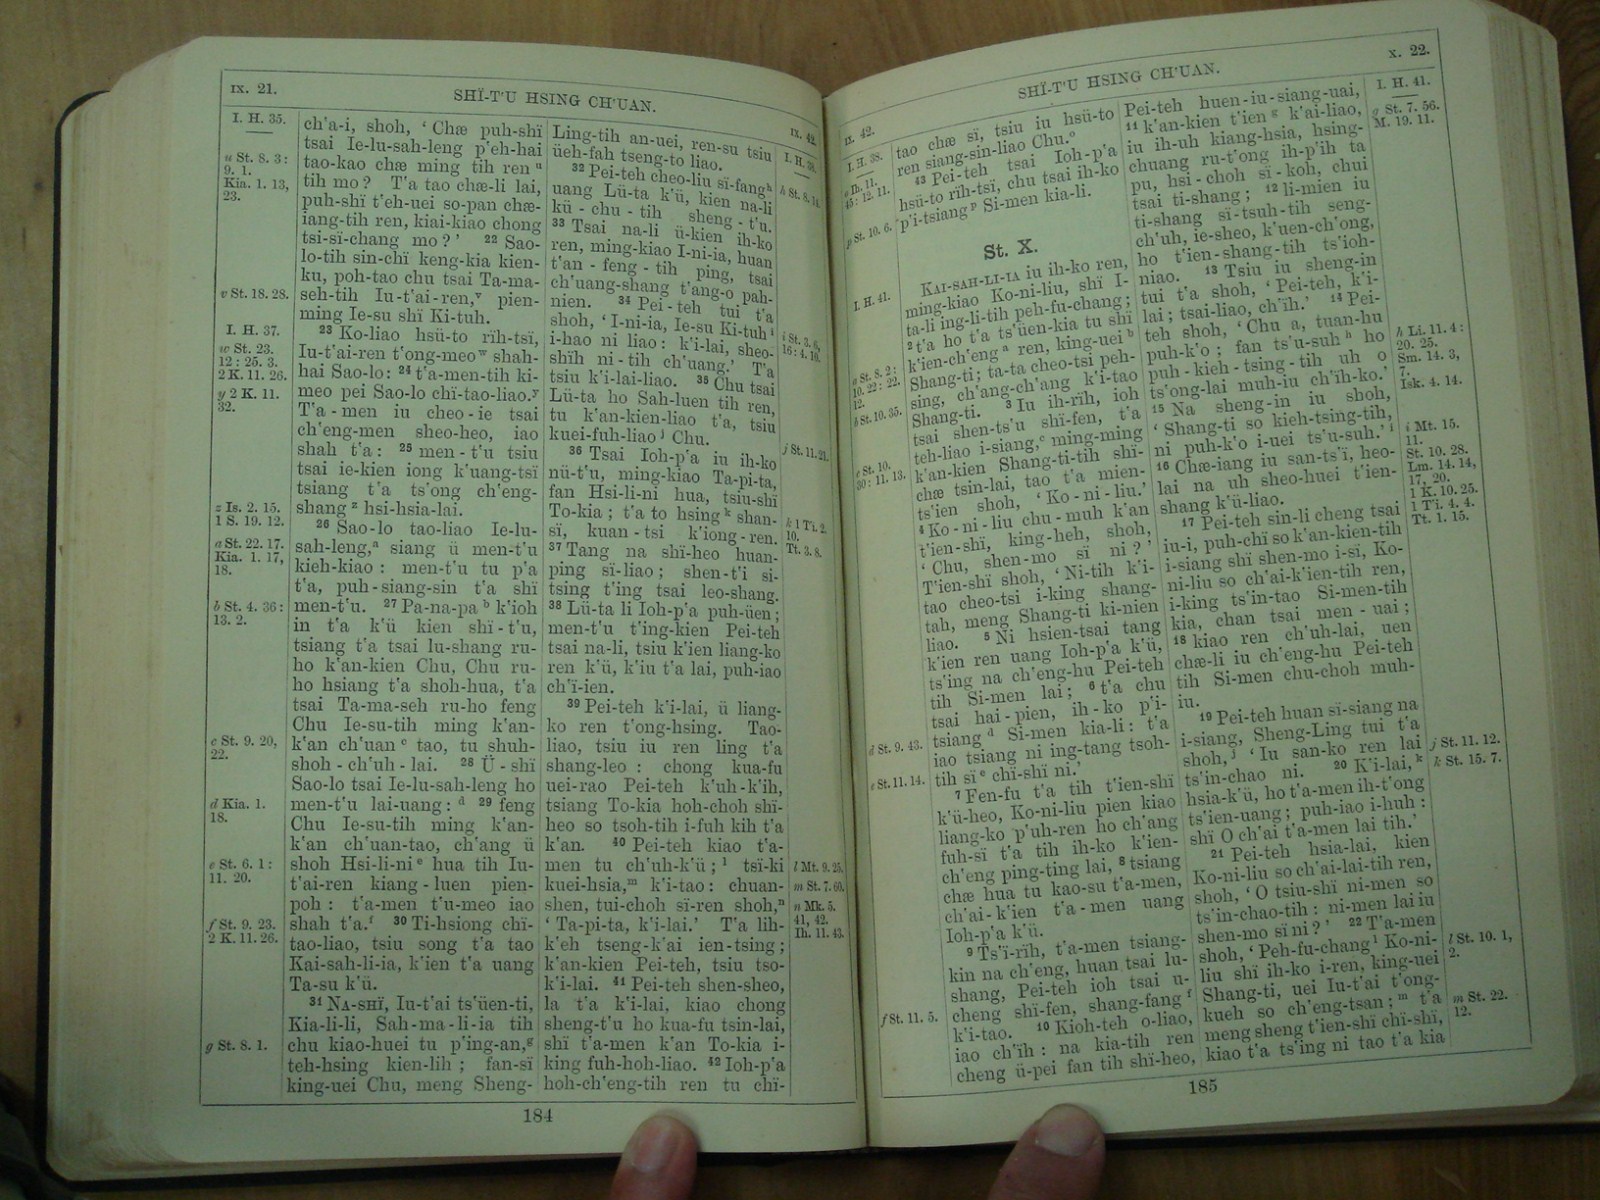 IX. 21.
SHÏ-T'U HSING CH'UAN.
IX. 42.
I. H. 35.
u St. 8. 3:
9. 1.
Kia. 1. 13,
23.
v St. 18. 28.
I. H. 37.
w St. 23.
12: 25. 3.
2 K. 11. 26.
y 2 K. 11.
32.
z Is. 2. 15.
1 S. 19. 12.
a St. 22. 17.
Kia. 1. 17,
18.
b St. 4. 36:
13. 2.
c St. 9. 20,
22.
d Kia. 1.
18.
e St. 6. 1:
11. 20.
f St. 9. 23.
2 K. 11. 26.
g St. 8. 1.
ch'a-i, shoh, ‘ Chæ puh-shï
tsai Ie-lu-sah-leng p'eh-hai
tao-kao chæ ming tih ren u
tih mo? T'a tao chæ-li lai,
puh-shï t'eh-uei so-pan chæ-
iang-tih ren, kiai-kiao chong
tsi-sï-chang mo?’ 22 Sao-
lo-tih sin-chï keng-kia kien-
ku, poh-tao chu tsai Ta-ma-
seh-tih Iu-t'ai-ren, v pien-
ming Ie-su shï Ki-tuh.
23 Ko-liao hsü-to rïh-tsï,
Iu-t'ai-ren t'ong-meo w shah-
hai Sao-lo: 24 t'a-men-tih ki-
meo pei Sao-lo chï-tao-liao. y
T'a-men iu cheo-ie tsai
ch'eng-men sheo-heo, iao
shah t'a: 25 men-t'u tsiu
tsai ie-kien iong k'uang-tsï
tsiang t'a ts'ong ch'eng-
shang z hsi-hsia-lai.
26 Sao-lo tao-liao Ie-lu-
sah-leng, a siang ü men-t'u
kieh-kiao: men-t'u tu p'a
t'a, puh-siang-sin t'a shï
men-t'u. 27 Pa-na-pa b k'ioh
in t'a k'ü kien shï-t'u,
tsiang t'a tsai lu-shang ru-
ho k'an-kien Chu, Chu ru-
ho hsiang t'a shoh-hua, t'a
tsai Ta-ma-seh ru-ho feng
Chu Ie-su-tih ming k'an-
k'an ch'uan c tao, tu shuh-
shoh-ch'uh-lai. 28 Ü-shï
Sao-lo tsai Ie-lu-sah-leng ho
men-t'u lai-uang: d 29 feng
Chu Ie-su-tih ming k'an-
k'an ch'uan-tao, ch'ang ü
shoh Hsi-li-ni e hua tih Iu-
t'ai-ren kiang-luen pien-
poh: t'a-men t'u-meo iao
shah t'a. f 30 Ti-hsiong chï-
tao-liao, tsiu song t'a tao
Kai-sah-li-ia, k'ien t'a uang
Ta-su k'ü.
31 NA-SHÏ, Iu-t'ai ts'üen-ti,
Kia-li-li, Sah-ma-li-ia tih
chu kiao-huei tu p'ing-an, g
teh-hsing kien-lih; fan-sï
king-uei Chu, meng Sheng-
Ling-tih an-uei, ren-su tsiu
üeh-fah tseng-to liao.
32 Pei-teh cheo-liu sï-fang h
uang Lü-ta k'ü, kien na-li
kü-chu-tih sheng-t'u.
33 Tsai na-li ü-kien ih-ko
ren, ming-kiao I-ni-ia, huan
t'an-feng-tih ping, tsai
ch'uang-shang t'ang-o pah-
nien. 34 Pei-teh tui t'a
shoh, ‘ I-ni-ia, Ie-su Ki-tuh i
i-hao ni liao: k'i-lai, sheo-
shïh ni-tih ch'uang.’ T'a
tsiu k'i-lai-liao. 35 Chu tsai
Lü-ta ho Sah-luen tih ren,
tu k'an-kien-liao t'a, tsiu
kuei-fuh-liao j Chu.
36 Tsai Ioh-p'a iu ih-ko
nü-t'u, ming-kiao Ta-pi-ta,
fan Hsi-li-ni hua, tsiu-shï
To-kia; t'a to hsing k shan-
sï, kuan-tsi k'iong-ren.
37 Tang na shï-heo huan-
ping sï-liao; shen-t'i si-
tsing t'ing tsai leo-shang.
38 Lü-ta li Ioh-p'a puh-üen;
men-t'u t'ing-kien Pei-teh
tsai na-li, tsiu k'ien liang-ko
ren k'ü, k'iu t'a lai, puh-iao
ch'ï-ien.
39 Pei-teh k'i-lai, ü liang-
ko ren t'ong-hsing. Tao-
liao, tsiu iu ren ling t'a
shang-leo: chong kua-fu
uei-rao Pei-teh k'uh-k'ih,
tsiang To-kia hoh-choh shï-
heo so tsoh-tih i-fuh kih t'a
k'an. 40 Pei-teh kiao t'a-
men tu ch'uh-k'ü; l tsï-ki
kuei-hsia, m k'i-tao: chuan-
shen, tui-choh sï-ren shoh, n
‘ Ta-pi-ta, k'i-lai.’ T'a lih-
k'eh tseng-k'ai ien-tsing;
k'an-kien Pei-teh, tsiu tso-
k'i-lai. 41 Pei-teh shen-sheo,
la t'a k'i-lai, kiao chong
sheng-t'u ho kua-fu tsin-lai,
shï t'a-men k'an To-kia i-
king fuh-hoh-liao. 42 Ioh-p'a
hoh-ch'eng-tih ren tu chï-
I. H. 38.
h St. 8. 14.
i St. 3. 6,
16: 4. 10.
j St. 11. 21.
k 1 Ti. 2.
10.
Tt. 3. 8.
l Mt. 9. 25.
m St. 7. 60.
n Mk. 5.
41, 42.
Ih. 11. 43.
184
IX. 42.
SHÏ-T'U HSING CH'UAN.
X. 22.
I. H. 38.
o Ih. 11.
45: 12. 11.
p St. 10. 6.
I. H. 41.
a St. 8. 2:
10. 22: 22.
12.
b St. 10. 35.
c St. 10.
30: 11. 13.
d St. 9. 43.
e St. 11. 14.
f St. 11. 5.
tao chæ sï, tsiu iu hsü-to
ren siang-sin-liao Chu. o
43 Pei-teh tsai Ioh-p'a
hsü-to rïh-tsï, chu tsai ih-ko
p'i-tsiang p Si-men kia-li.
St. X.
KAI-SAH-LI-IA iu ih-ko ren,
ming-kiao Ko-ni-liu, shï I-
ta-li ing-li-tih peh-fu-chang;
2 t'a ho t'a ts'üen-kia tu shï
k'ien-ch'eng a ren, king-uei b
Shang-ti; ta-ta cheo-tsi peh-
sing, ch'ang-ch'ang k'i-tao
Shang-ti. 3 Iu ih-rïh, ioh
tsai shen-ts'u shï-fen, t'a
teh-liao i-siang, c ming-ming
k'an-kien Shang-ti-tih shï-
chæ tsin-lai, tao t'a mien-
ts'ien shoh, ‘ Ko-ni-liu.’
4 Ko-ni-liu chu-muh k'an
t'ien-shï, king-heh, shoh,
‘ Chu, shen-mo sï ni?’
T'ien-shï shoh, ‘ Ni-tih k'i-
tao cheo-tsi i-king shang-
tah, meng Shang-ti ki-nien
liao. 5 Ni hsien-tsai tang
k'ien ren uang Ioh-p'a k'ü,
ts'ing na ch'eng-hu Pei-teh
tih Si-men lai; 6 t'a chu
tsai hai-pien, ih-ko p'i-
tsiang d Si-men kia-li: t'a
iao tsiang ni ing-tang tsoh-
tih sï e chï-shï ni.’
7 Fen-fu t'a tih t'ien-shï
k'ü-heo, Ko-ni-liu pien kiao
liang-ko p'uh-ren ho ch'ang
fuh-sï t'a tih ih-ko k'ien-
ch'eng ping-ting lai, 8 tsiang
chæ hua tu kao-su t'a-men,
ch'ai-k'ien t'a-men uang
Ioh-p'a k'ü.
9 Ts'ï-rïh, t'a-men tsiang-
kin na ch'eng, huan tsai lu-
shang, Pei-teh ioh tsai u-
cheng shï-fen, shang-fang f
k'i-tao. 10 Kioh-teh o-liao,
iao ch'ïh: na kia-tih ren
cheng ü-pei fan tih shï-heo,
Pei-teh huen-iu-siang-uai,
11 k'an-kien t'ien g k'ai-liao,
iu ih-uh kiang-hsia, hsing-
chuang ru-t'ong ih-p'ih ta
pu, hsi-choh sï-koh, chui
tsai ti-shang; 12 li-mien iu
ti-shang sï-tsuh-tih seng-
ch'uh, ie-sheo, k'uen-ch'ong,
ho t'ien-shang-tih ts'ioh-
niao. 13 Tsiu iu sheng-in
tui t'a shoh, ‘ Pei-teh, k'i-
lai; tsai-liao, ch'ïh.’ 14 Pei-
teh shoh, ‘ Chu a, tuan-hu
puh-k'o; fan ts'u-suh h ho
puh-kieh-tsing-tih uh o
ts'ong-lai muh-iu ch'ïh-ko.’
15 Na sheng-in iu shoh,
‘ Shang-ti so kieh-tsing-tih,
ni puh-k'o i-uei ts'u-suh.’ i
16 Chæ-iang iu san-ts'ï, heo-
lai na uh sheo-huei t'ien-
shang k'ü-liao.
17 Pei-teh sin-li cheng tsai
iu-i, puh-chï so k'an-kien-tih
i-siang shï shen-mo i-sï, Ko-
ni-liu so ch'ai-k'ien-tih ren,
i-king ts'in-tao Si-men-tih
kia, chan tsai men-uai;
18 kiao ren ch'uh-lai, uen
chæ-li iu ch'eng-hu Pei-teh
tih Si-men chu-choh muh-
iu.
19 Pei-teh huan sï-siang na
i-siang, Sheng-Ling tui t'a
shoh, j ‘ Iu san-ko ren lai
ts'in-chao ni. 20 K'i-lai, k
hsia-k'ü, ho t'a-men ih-t'ong
ts'ien-uang; puh-iao i-huh:
shï O ch'ai t'a-men lai tih.’
21 Pei-teh hsia-lai, kien
Ko-ni-liu so ch'ai-lai-tih ren,
shoh, ‘ O tsiu-shï ni-men so
ts'in-chao-tih: ni-men lai iu
shen-mo sï ni?’ 22 T'a-men
shoh, ‘ Peh-fu-chang l Ko-ni-
liu shï ih-ko i-ren, king-uei
Shang-ti, uei Iu-t'ai t'ong-
kueh so ch'eng-tsan; m t'a
meng sheng t'ien-shï chï-shï,
kiao t'a ts'ing ni tao t'a kia
I. H. 41.
g St. 7. 56.
M. 19. 11.
h Li. 11. 4:
20. 25.
Sm. 14. 3,
7.
Isk. 4. 14.
i Mt. 15.
11.
St. 10. 28.
Lm. 14. 14,
17, 20.
1 K. 10. 25.
1 Ti. 4. 4.
Tt. 1. 15.
j St. 11. 12.
k St. 15. 7.
l St. 10. 1,
2.
m St. 22.
12.
185